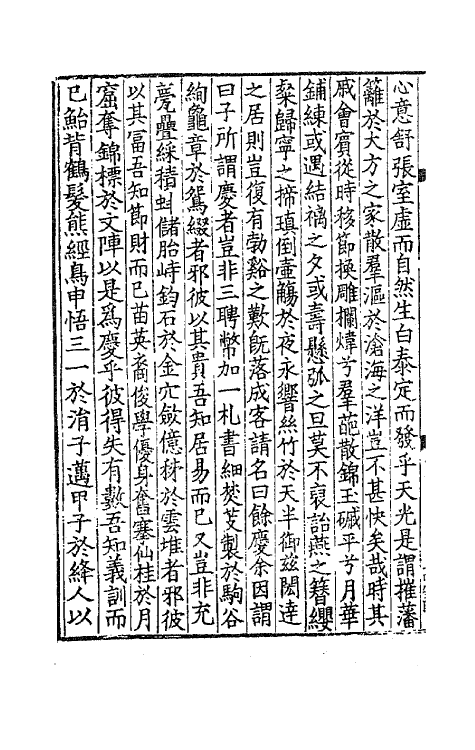 心意舒張室虛而自然生白泰定而發乎天光是謂摧藩
籬於大方之家散羣漚於滄海之洋豈不甚快矣哉時其
戚會賓從時移節換雕攔煒兮羣葩散錦玉墄平兮月華
鋪練或遇結褵之夕或壽懸弧之旦莫不裒詒燕之簪纓
粲歸寧之揥瑱倒壺觴於夜永響絲竹於天半御茲閎達
之居則豈復有勃谿之歎旣落成客請名曰餘慶余因謂
曰子所謂慶者豈非三聘幣加一札書細焚芰製於駒谷
絢龜章於鴛綴者邪彼以其貴吾知居易而巳又豈非充
甍疊綵積蚪儲胎峙鈞石於金穴斂億秭於雲堆者邪彼
以其冨吾知節財而巳苗英裔俊學優身奮搴仙桂於月
窟奪錦標於文陣以是爲慶乎彼得失有數吾知義訓而
巳鮐背鶴髮熊經鳥申悟三一於涓子邁甲子於絳人以